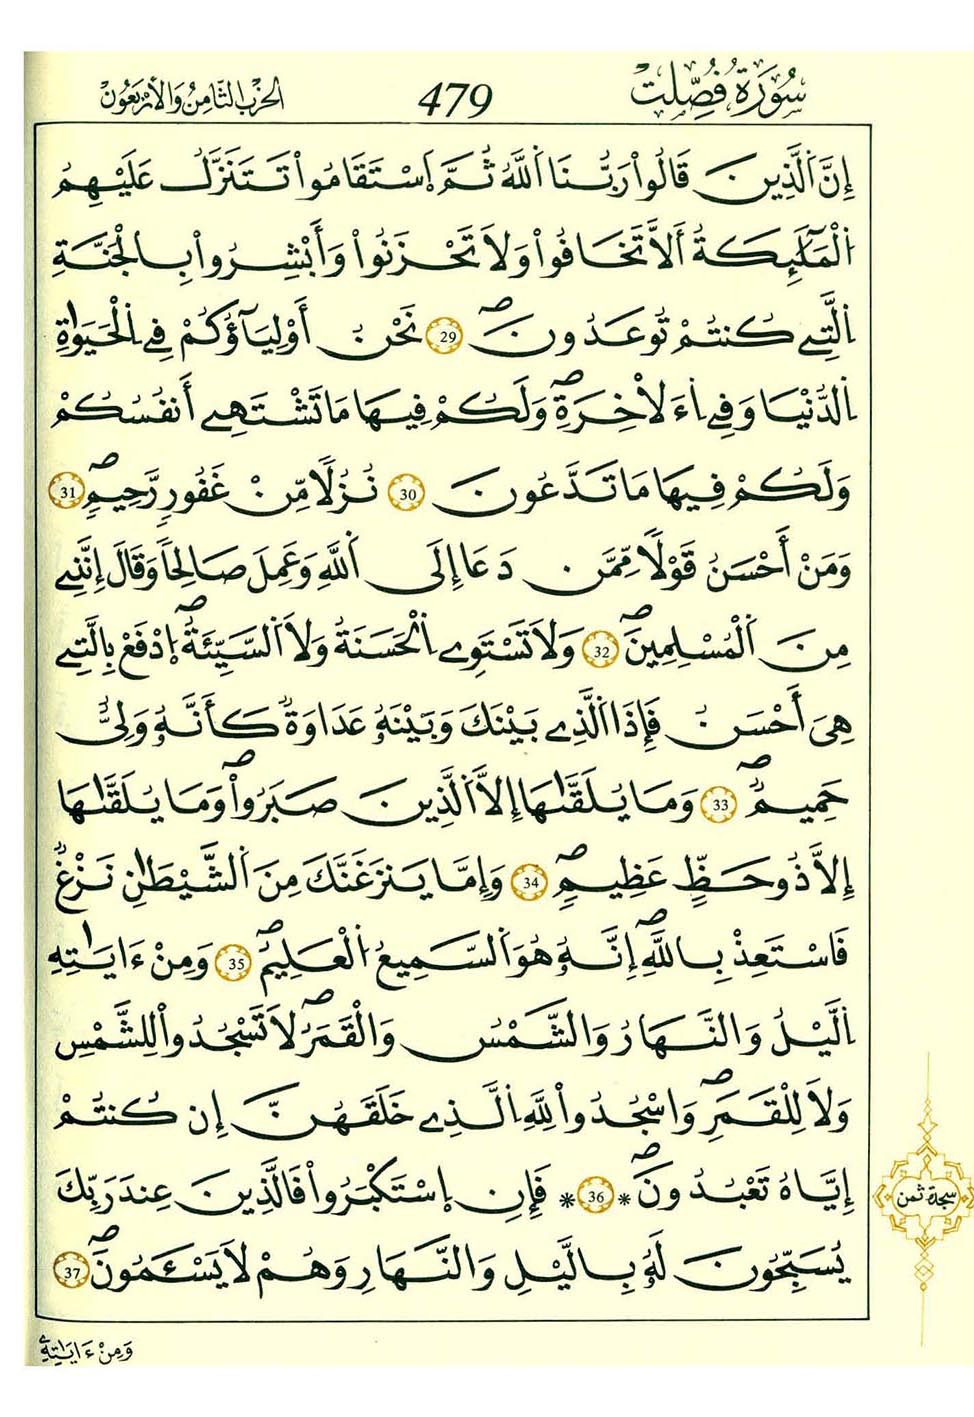 سُورَةُ فُصِّلَتْ 479 الحزب الثَّامِنُ وَالْأَرْبَعُونَ
إِنَّ اَ۬لذِينَ قَالُواْ رَبُّنَا اَ۬للَّهُ ثُمَّ اَ۪سْتَقَٰمُواْ تَتَنَزَّلُ عَلَيْهِمُ
اُ۬لْمَلَٰٓئِكَةُ أَلَّا تَخَافُواْ وَلَا تَحْزَنُواْ وَأَبْشِرُواْ بِالْجَنَّةِ
اِ۬لتِے كُنتُمْ تُوعَدُونَۖ 29 نَحْنُ أَوْلِيَآؤُكُمْ فِے اِ۬لْحَيَوٰةِ
اِ۬لدُّنْيَا وَفِے اِ۬ءَلَاخِرَةِۖ وَلَكُمْ فِيهَا مَا تَشْتَهِے أَنفُسُكُمْ
وَلَكُمْ فِيهَا مَا تَدَّعُونَ 30 نُزُلاٗ مِّنْ غَفُورٖ رَّحِيمٖۖ 31
وَمَنْ أَحْسَنُ قَوْلاٗ مِّمَّن دَعَا إِلَى اَ۬للَّهِ وَعَمِلَ صَالِحاٗ وَقَالَ إِنَّنِے
مِنَ اَ۬لْمُسْلِمِينَۖ 32 وَلَا تَسْتَوِے اِ۬لْحَسَنَةُ وَلَا اَ۬لسَّيِّئَةُۖ اُ۪دْفَعْ بِالتِے
هِيَ أَحْسَنُ فَإِذَا اَ۬لذِے بَيْنَكَ وَبَيْنَهُۥ عَدَٰوَةٞ كَأَنَّهُۥ وَلِيٌّ
حَمِيمٞۖ 33 وَمَا يُلَقَّىٰهَا إِلَّا اَ۬لذِينَ صَبَرُواْۖ وَمَا يُلَقَّىٰهَا
إِلَّا ذُو حَظٍّ عَظِيمٖۖ 34 وَإِمَّا يَنزَغَنَّكَ مِنَ اَ۬لشَّيْطَٰنِ نَزْغٞ
فَاسْتَعِذْ بِاللَّهِۖ إِنَّهُۥ هُوَ اَ۬لسَّمِيعُ اُ۬لْعَلِيمُۖ 35 وَمِنْ ءَايَٰتِهِ
اِ۬ليْلُ وَالنَّهَارُ وَالشَّمْسُ وَالْقَمَرُۖ لَا تَسْجُدُواْ لِلشَّمْسِ
وَلَا لِلْقَمَرِۖ وَاسْجُدُواْ لِلهِ اِ۬لذِے خَلَقَهُنَّ إِن كُنتُمْ
إِيَّاهُ تَعْبُدُونَۖ * 36 * فَإِنِ اِ۪سْتَكْبَرُواْ فَالذِينَ عِندَ رَبِّكَ
يُسَبِّحُونَ لَهُۥ بِاليْلِ وَالنَّهَارِ وَهُمْ لَا يَسْـَٔمُونَۖ 37
سجدة ثمن
وَمِنْ ءَايَٰتِهِۦ